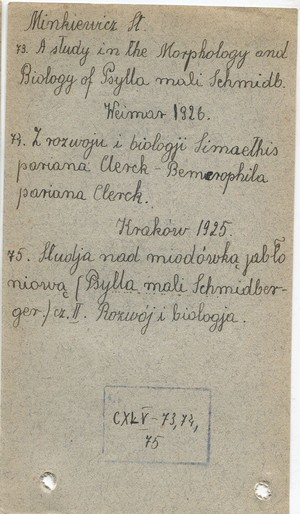 Minkiewicz St.
73. A study in the Morphology and
Biology of Psylla mali Schmidb.
Weimar 1926.
74. Z rozwoju i biologji Simaethis
pariana Clerck - Bemerophila
pariana Clerck.
Kraków 1925.
75. Studja nad miodówką jabło
niową (Psylla mali Schmidber-
ger) cz. II. Rozwój i biologja.
CXLV - 73, 74,
75